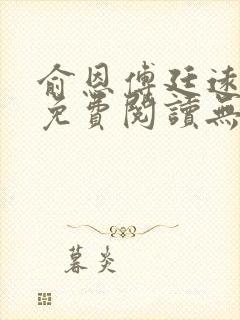 俞恩傅廷遠
免費閱讀無
暮炎